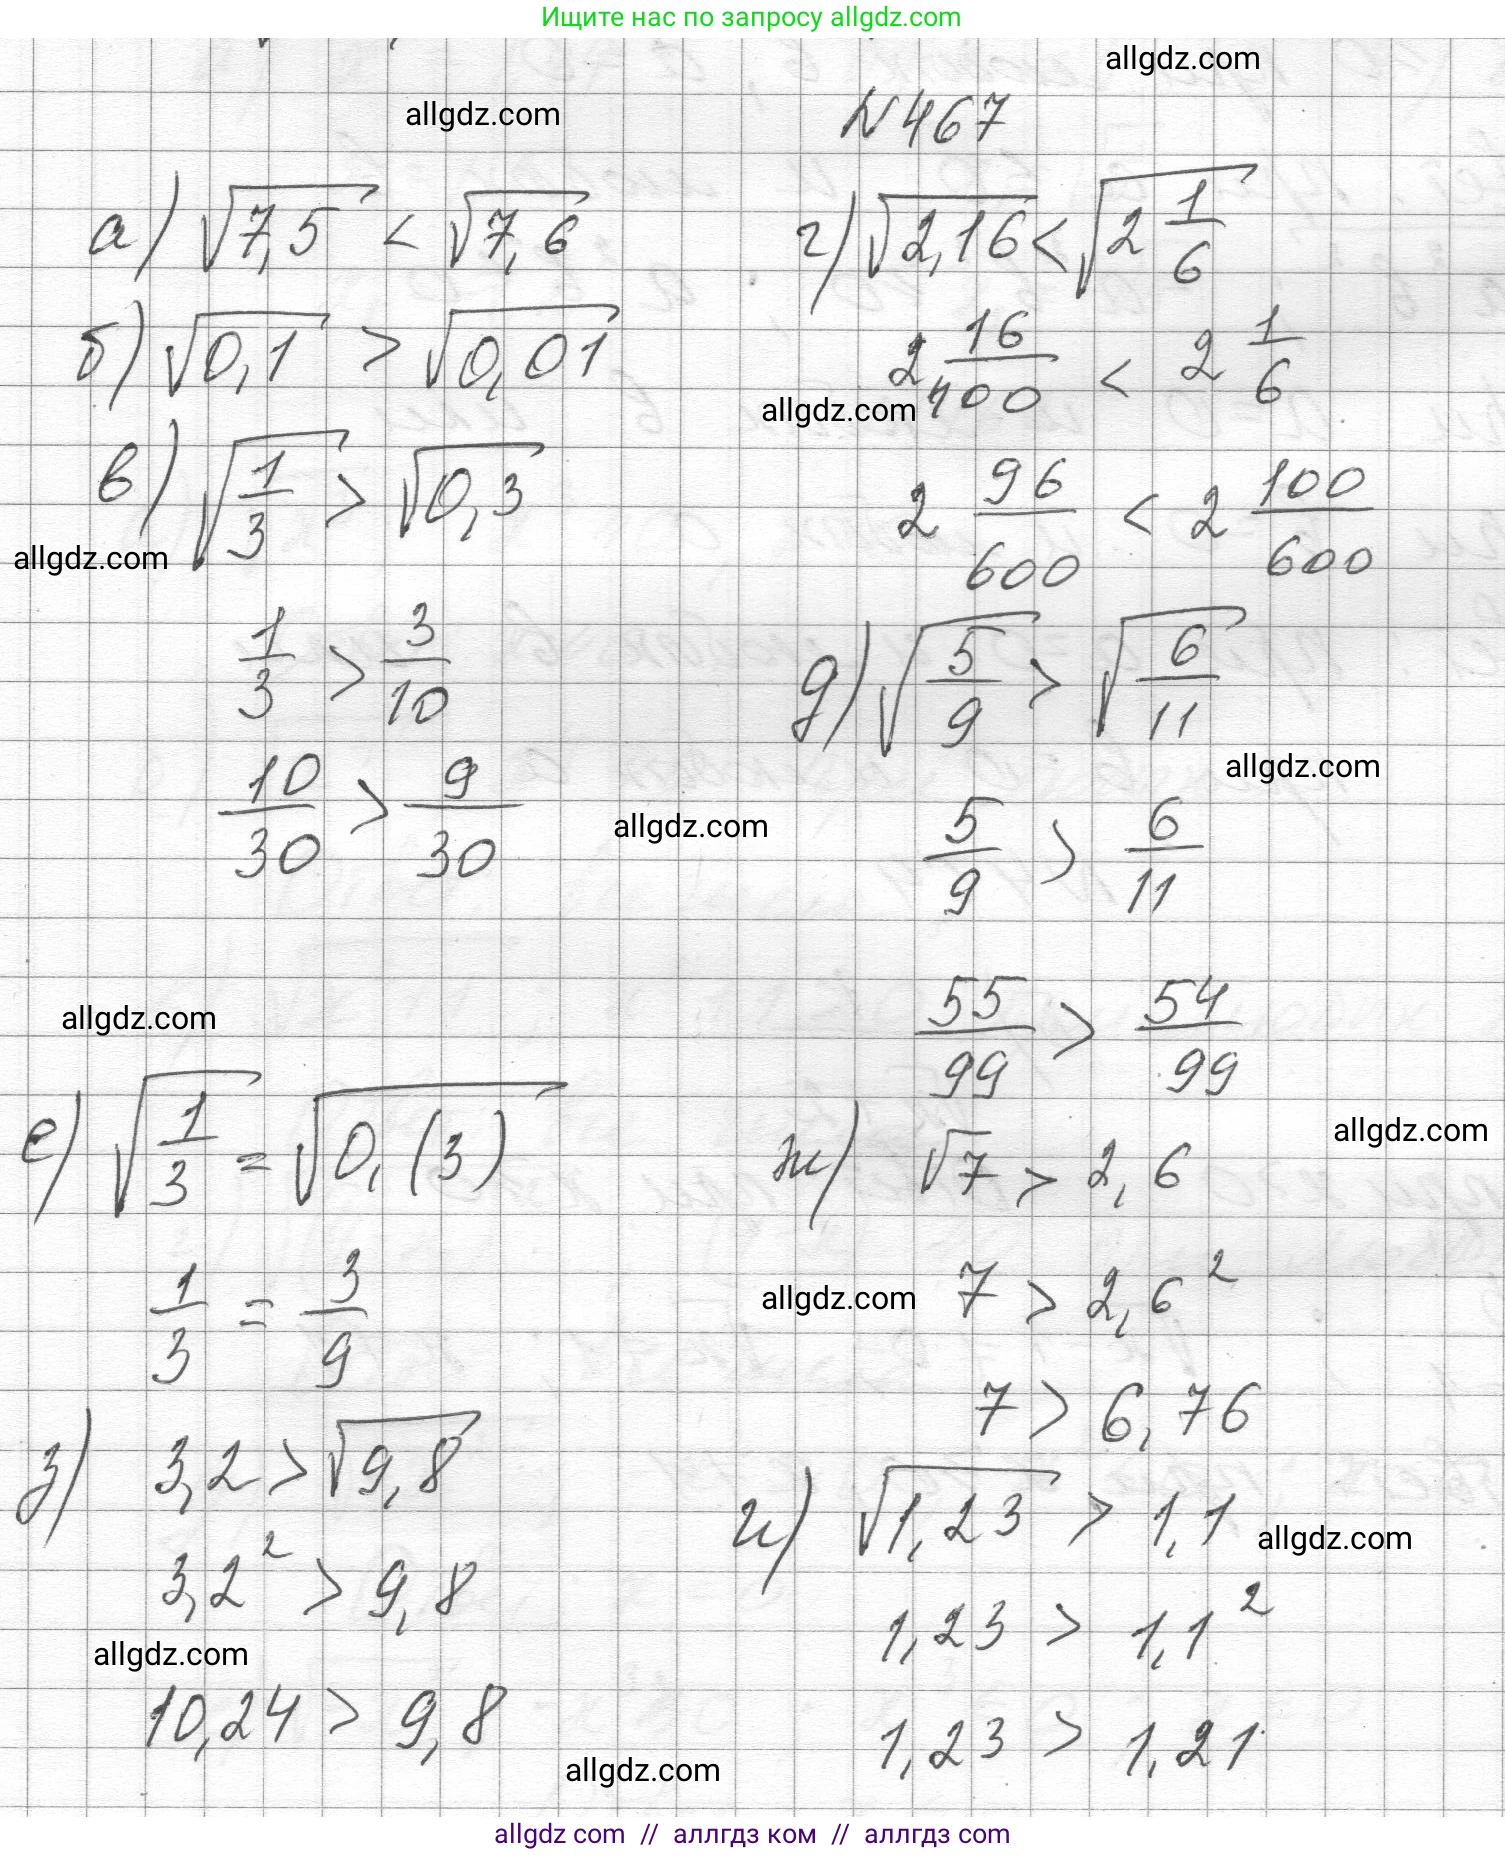 Ищите нас по запросу allgdz.com
allgdz.com
allgdz.com
N 467
а) √7,5 < √7,6
б) √0,1 > √0,01
в) √(1/3) > √0,3
allgdz.com
1/3 > 3/10
10/30 > 9/30
г) √2,16 < √(2 1/6)
2 16/100 < 2 1/6
allgdz.com
2 96/600 < 2 100/600
д) √(5/9) > √(6/11)
allgdz.com
allgdz.com
5/9 > 6/11
55/99 > 54/99
allgdz.com
е) √(1/3) = √0,(3)
1/3 = 3/9
allgdz.com
ж) √7 > 2,6
allgdz.com
7 > 2,6²
7 > 6,76
з) 3,2 > √9,8
3,2² > 9,8
allgdz.com
10,24 > 9,8
и) √1,23 > 1,1
allgdz.com
1,23 > 1,1²
1,23 > 1,21
allgdz.com
allgdz com // аллгдз ком // аллгдз com